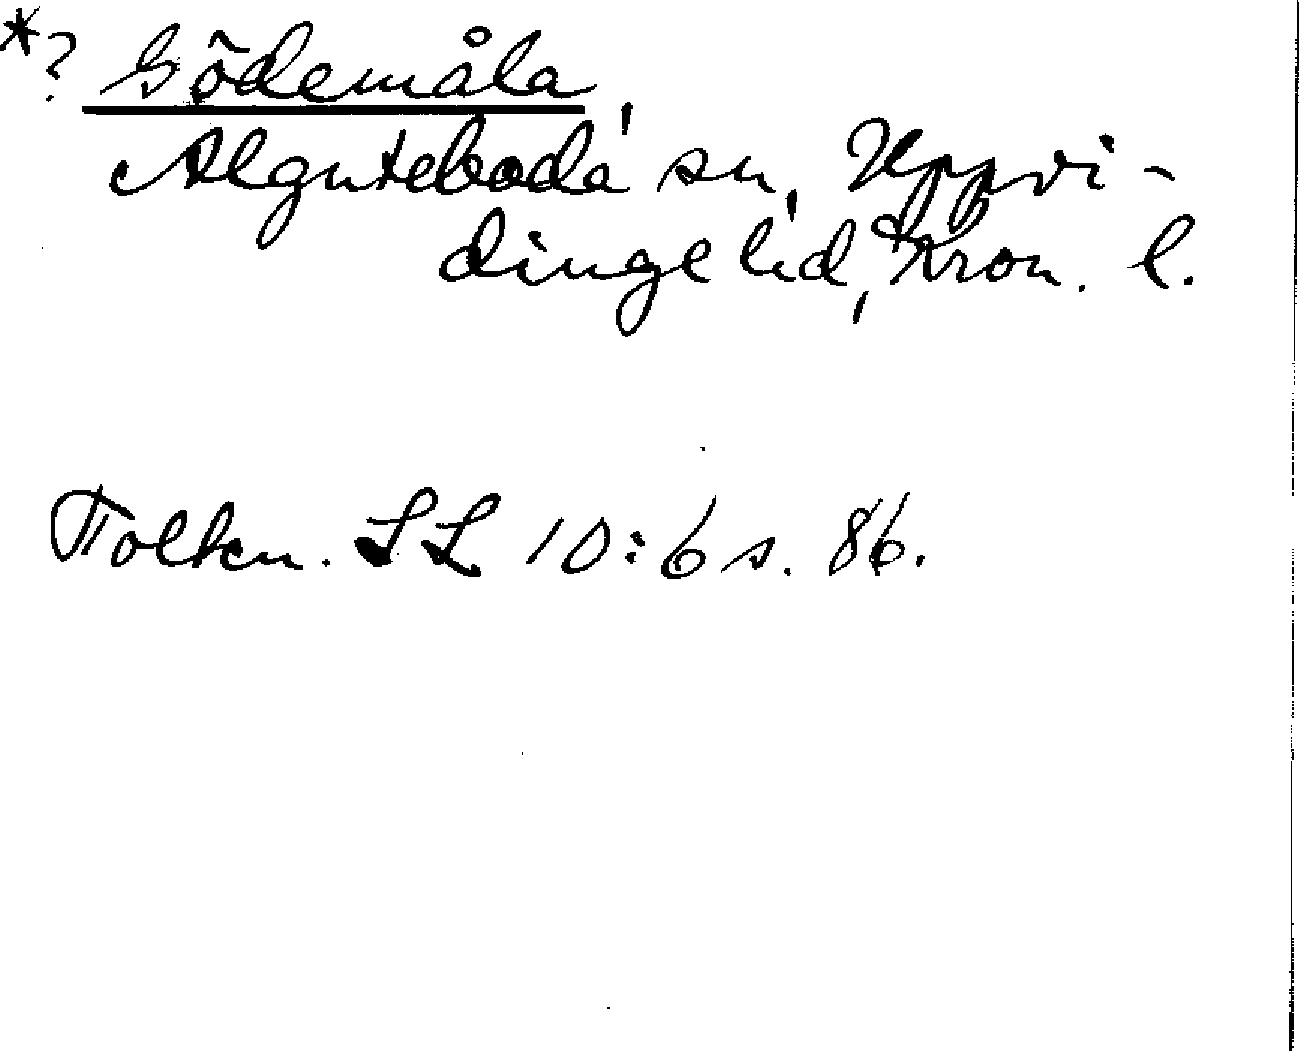 *? Södemåla,
Algutsboda sn, Uppvi-
dinge hd, Kron. l.
Folkm. SL 10:6 s. 86.